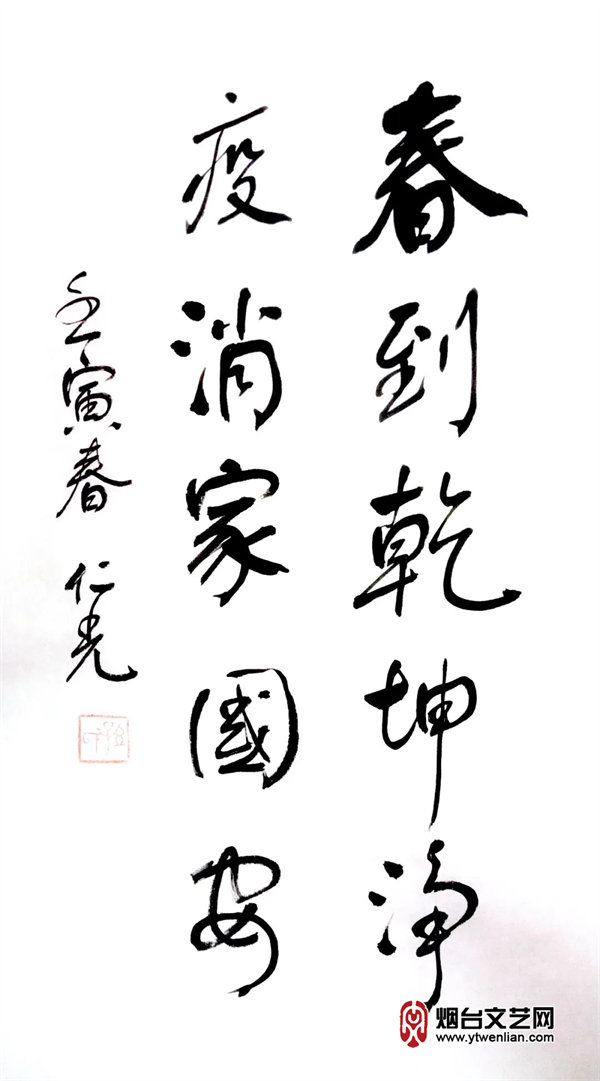 春到乾坤淨
疫消家國安
壬寅春 仁光
烟台文艺网
www.ytwenlian.com